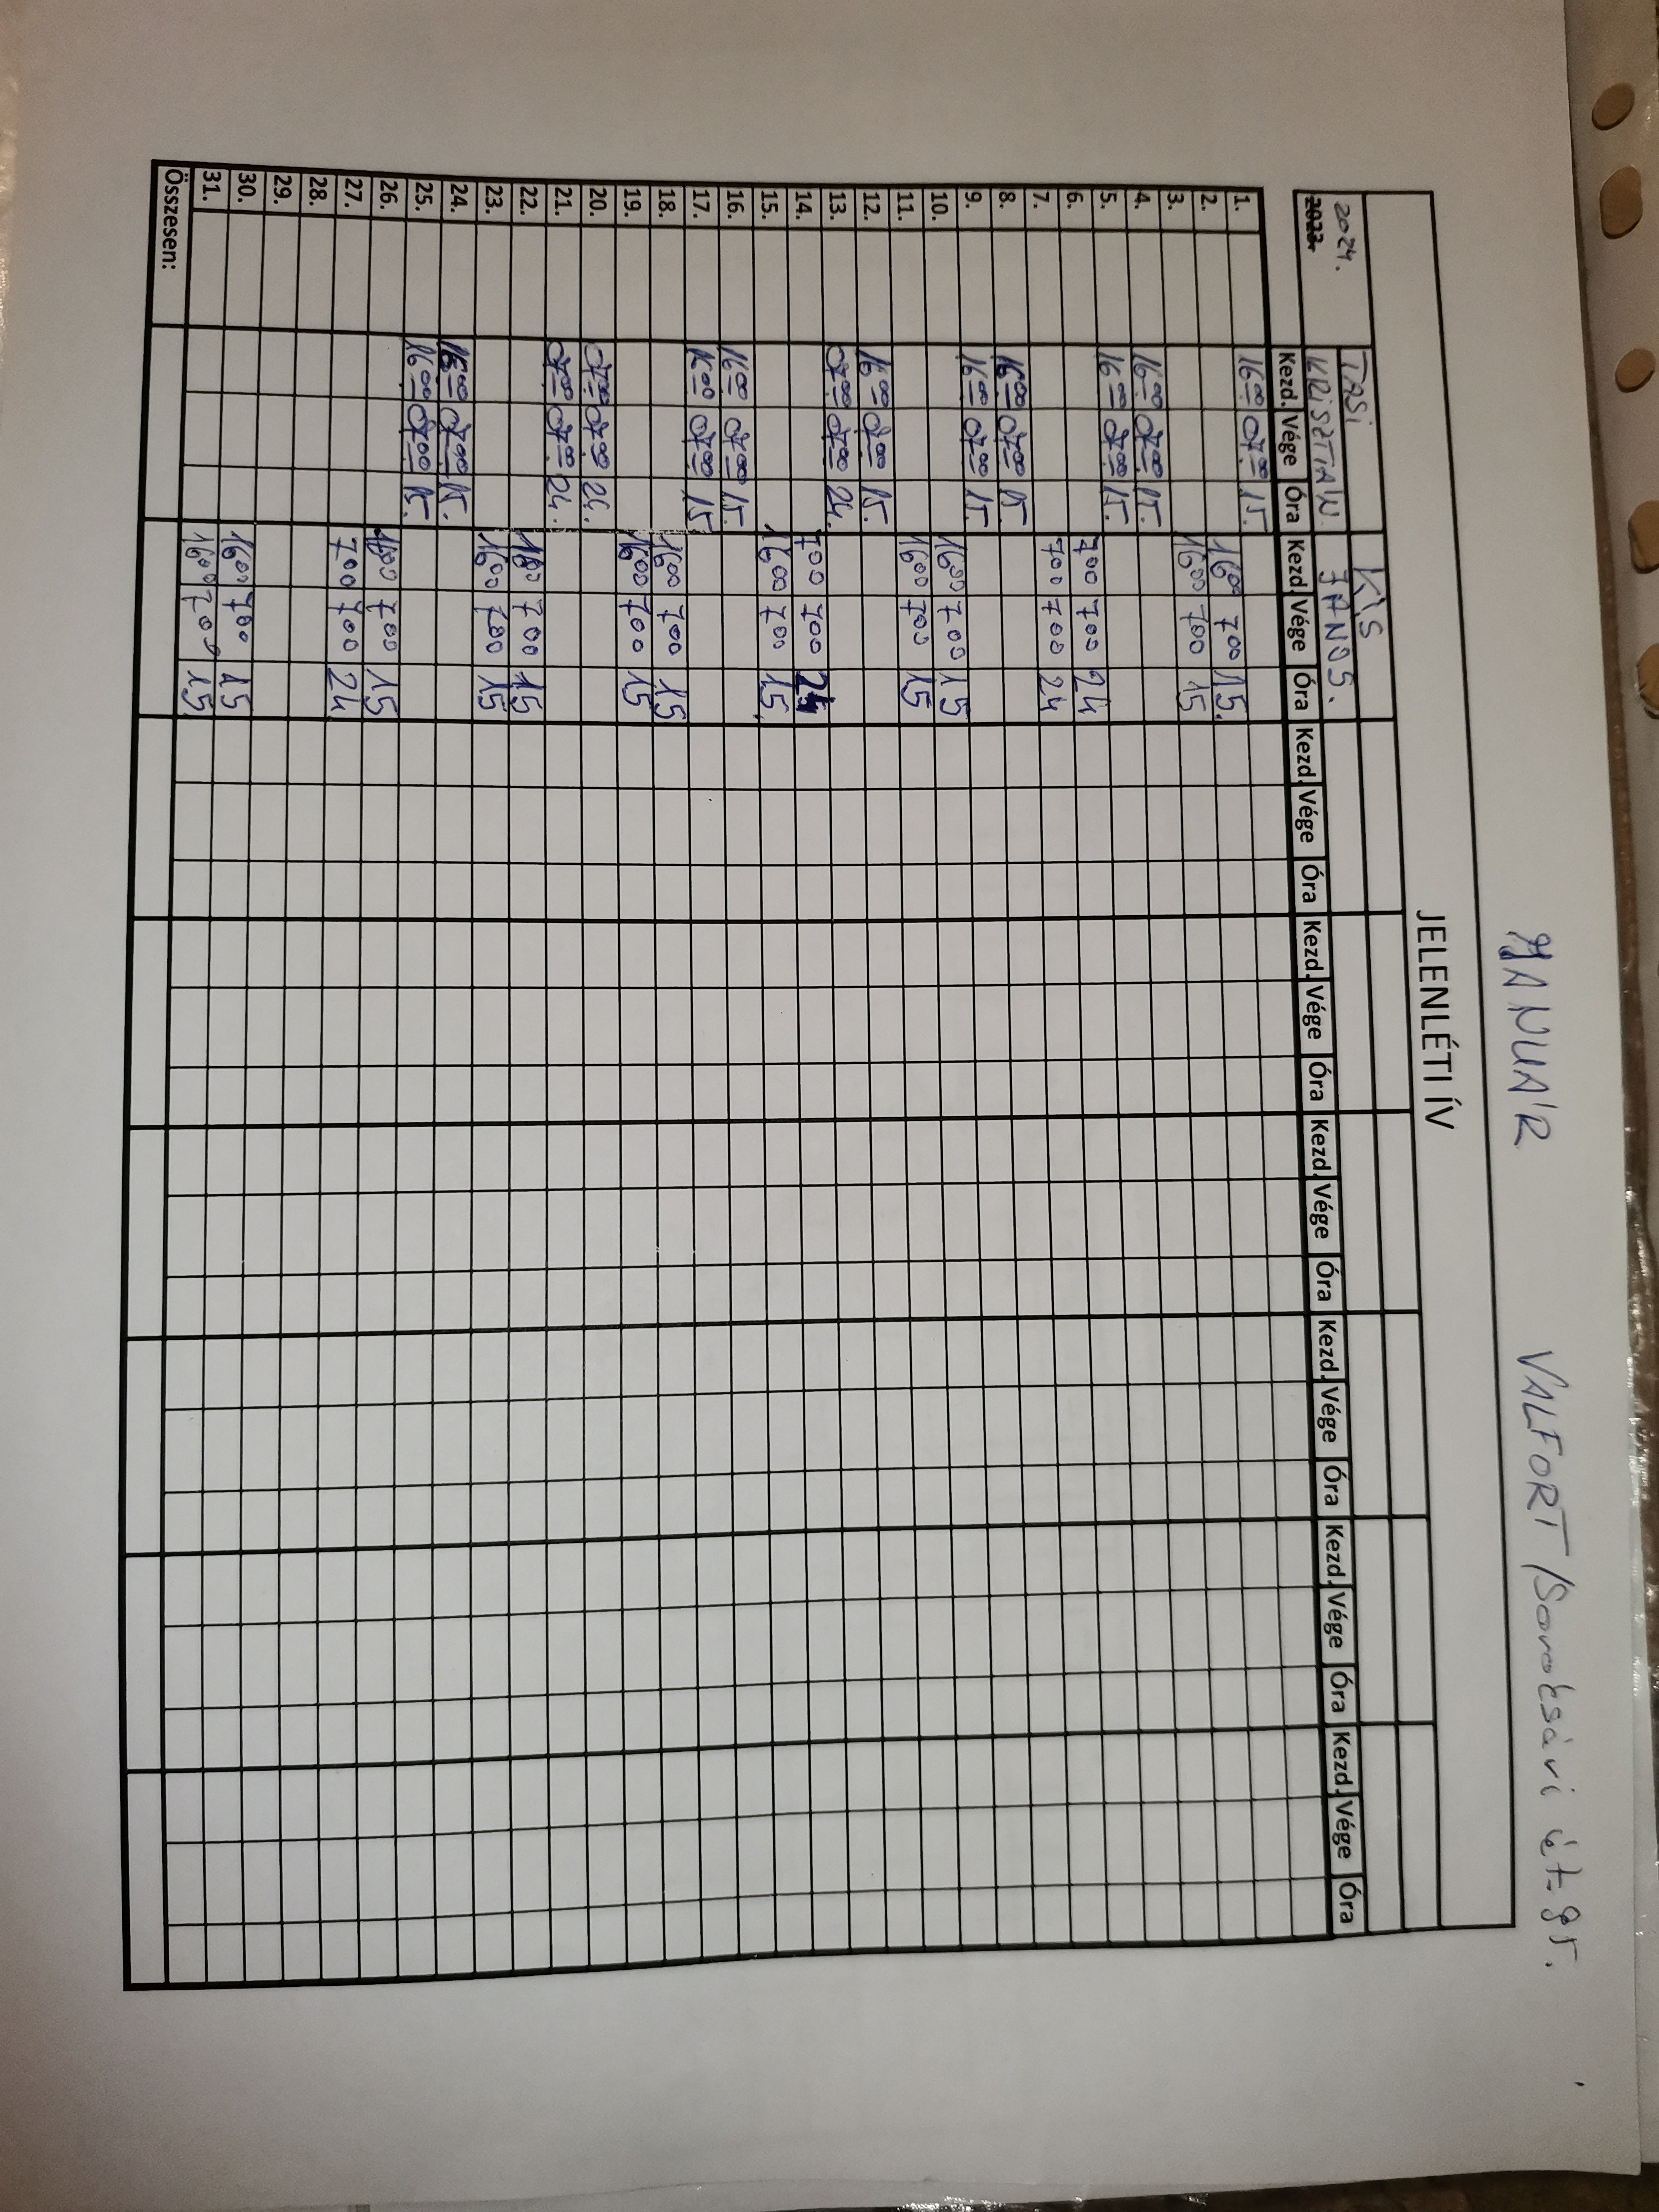 JANUÁR VALFORT / Soroksári út 95.
JELENLÉTI ÍV
2024. TASI KIS
2023. KRISZTIÁN JÁNOS.
Kezd. Vége Óra Kezd. Vége Óra Kezd. Vége Óra Kezd. Vége Óra Kezd. Vége Óra Kezd. Vége Óra Kezd. Vége Óra Kezd. Vége Óra
1. 16 00 07 00 15.
2. 16 00 7 00 15.
3. 16 00 7 00 15
4. 16 00 07 00 15.
5. 16 00 07 00 15.
6. 7 00 7 00 24
7. 7 00 7 00 24
8. 16 00 07 00 15.
9. 16 00 07 00 15.
10. 16 00 7 00 15
11. 16 00 7 00 15
12. 16 00 07 00 15.
13. 07 00 07 00 24.
14. 7 00 7 00 24
15. 16 00 7 00 15.
16. 16 00 07 00 15.
17. 16 00 07 00 15
18. 16 00 7 00 15
19. 16 00 7 00 15
20. 07 00 07 00 24.
21. 07 00 07 00 24.
22. 16 00 7 00 15
23. 16 00 7 00 15
24. 16 00 07 00 15.
25. 16 00 07 00 15.
26. 16 00 7 00 15
27. 7 00 7 00 24
28.
29.
30. 16 00 7 00 15
31. 16 00 7 00 15
Összesen: